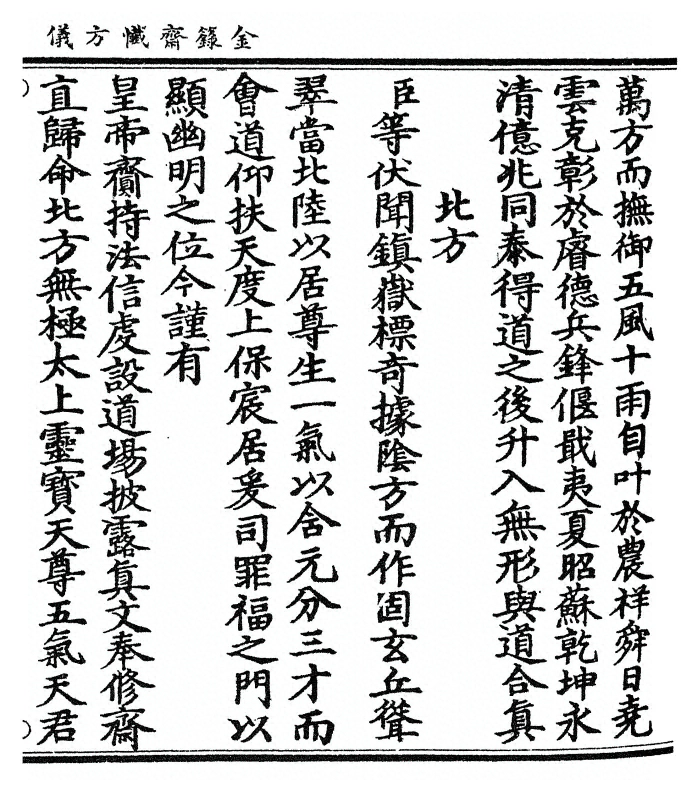 金籙齋懺方儀
萬方而撫御五風十雨自叶於農祥舜日堯
雲克彰於睿德兵鋒偃戢夷夏昭蘇乾坤永
清億兆同泰得道之後升入無形與道合真
北方
臣等伏聞鎮嶽標奇據陰方而作固玄丘聳
翠當北陸以居尊生一氣以含元分三才而
會道仰扶天度上保宸居爰司罪福之門以
顯幽明之位今謹有
皇帝齎持法信虔設道場披露真文奉修齋
直歸命北方無極太上靈寶天尊五氣天君